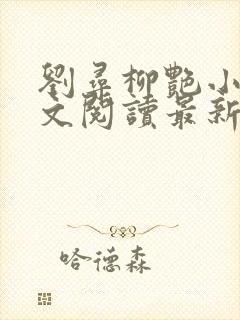 劉尋柳艷小
文閱讀最新
哈德森